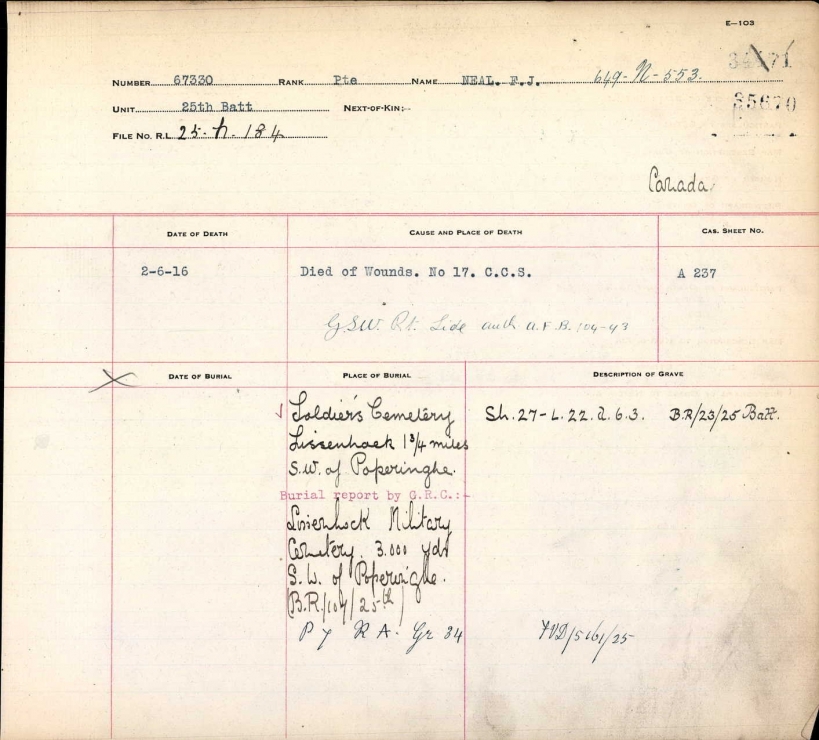 E—103
34171
NUMBER 67330 RANK Pte NAME NEAL. F.J. 649-N-553.
35670
UNIT 25th Batt NEXT-OF-KIN:-
FILE NO. R.L. 25-N.184
Canada.
DATE OF DEATH CAUSE AND PLACE OF DEATH CAS. SHEET NO.
2-6-16 Died of Wounds. No 17. C.C.S. A 237
G.S.W. Rt. Side auth A.F.B. 104-43
DATE OF BURIAL PLACE OF BURIAL DESCRIPTION OF GRAVE
Soldier's Cemetery Sh.27-L.22.d.6.3. B.R/23/25 Batt.
Lissenhoek 1 3/4 miles
S.W. of Poperinghe.
Burial report by G.R.C.:-
Lissenhock Military
Cemetery. 3.000 yds
S.W. of Poperinghe.
B.R./104/25th
R A. Gr 34